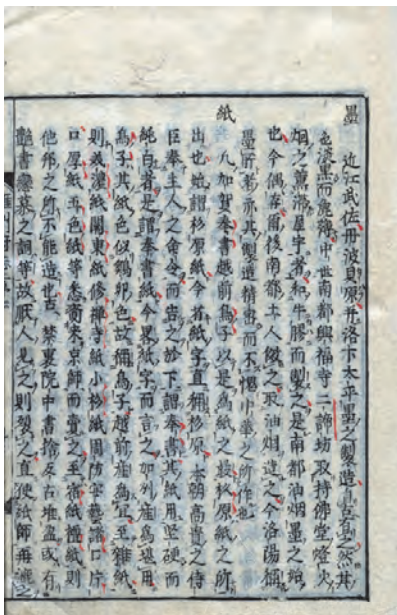 墨　近江武佐丹波貝原并洛下太平墨之製造自古有之然其
色淡黑而麁礫中世南都興福寺二諦坊取持佛堂燈火
烟之薰滿屋宇者和牛膠而製之是南都油烟墨之始
也今偶存爾後南都土人傚之取油烟造之今洛陽
墨所者亦其製造精密而不愧中華之所作也
紙　凡加賀奉書越前鳥子以是為紙之最杉原紙之所
出也始謂杉原紙今省紙字直稱杉原本朝高貴之侍
臣奉主人之命令而告之於下謂奉書其紙用堅硬而
純白者是謂奉書紙今畧紙字而言之加刕産為堪用
鳥子其紙色似鷄卵色故稱鳥子越前産為宜至雜紙
則美濃紙關東紙修禪寺紙小杉紙周防藝諸口片
口厚紙五色紙等悉來京師而賣之至宿紙紙則
他邦之所不能造也古 禁裏院中書捨反古堆盈或有
艷書戀慕之詞等故厭人見之則製之直使紙師毎漉之